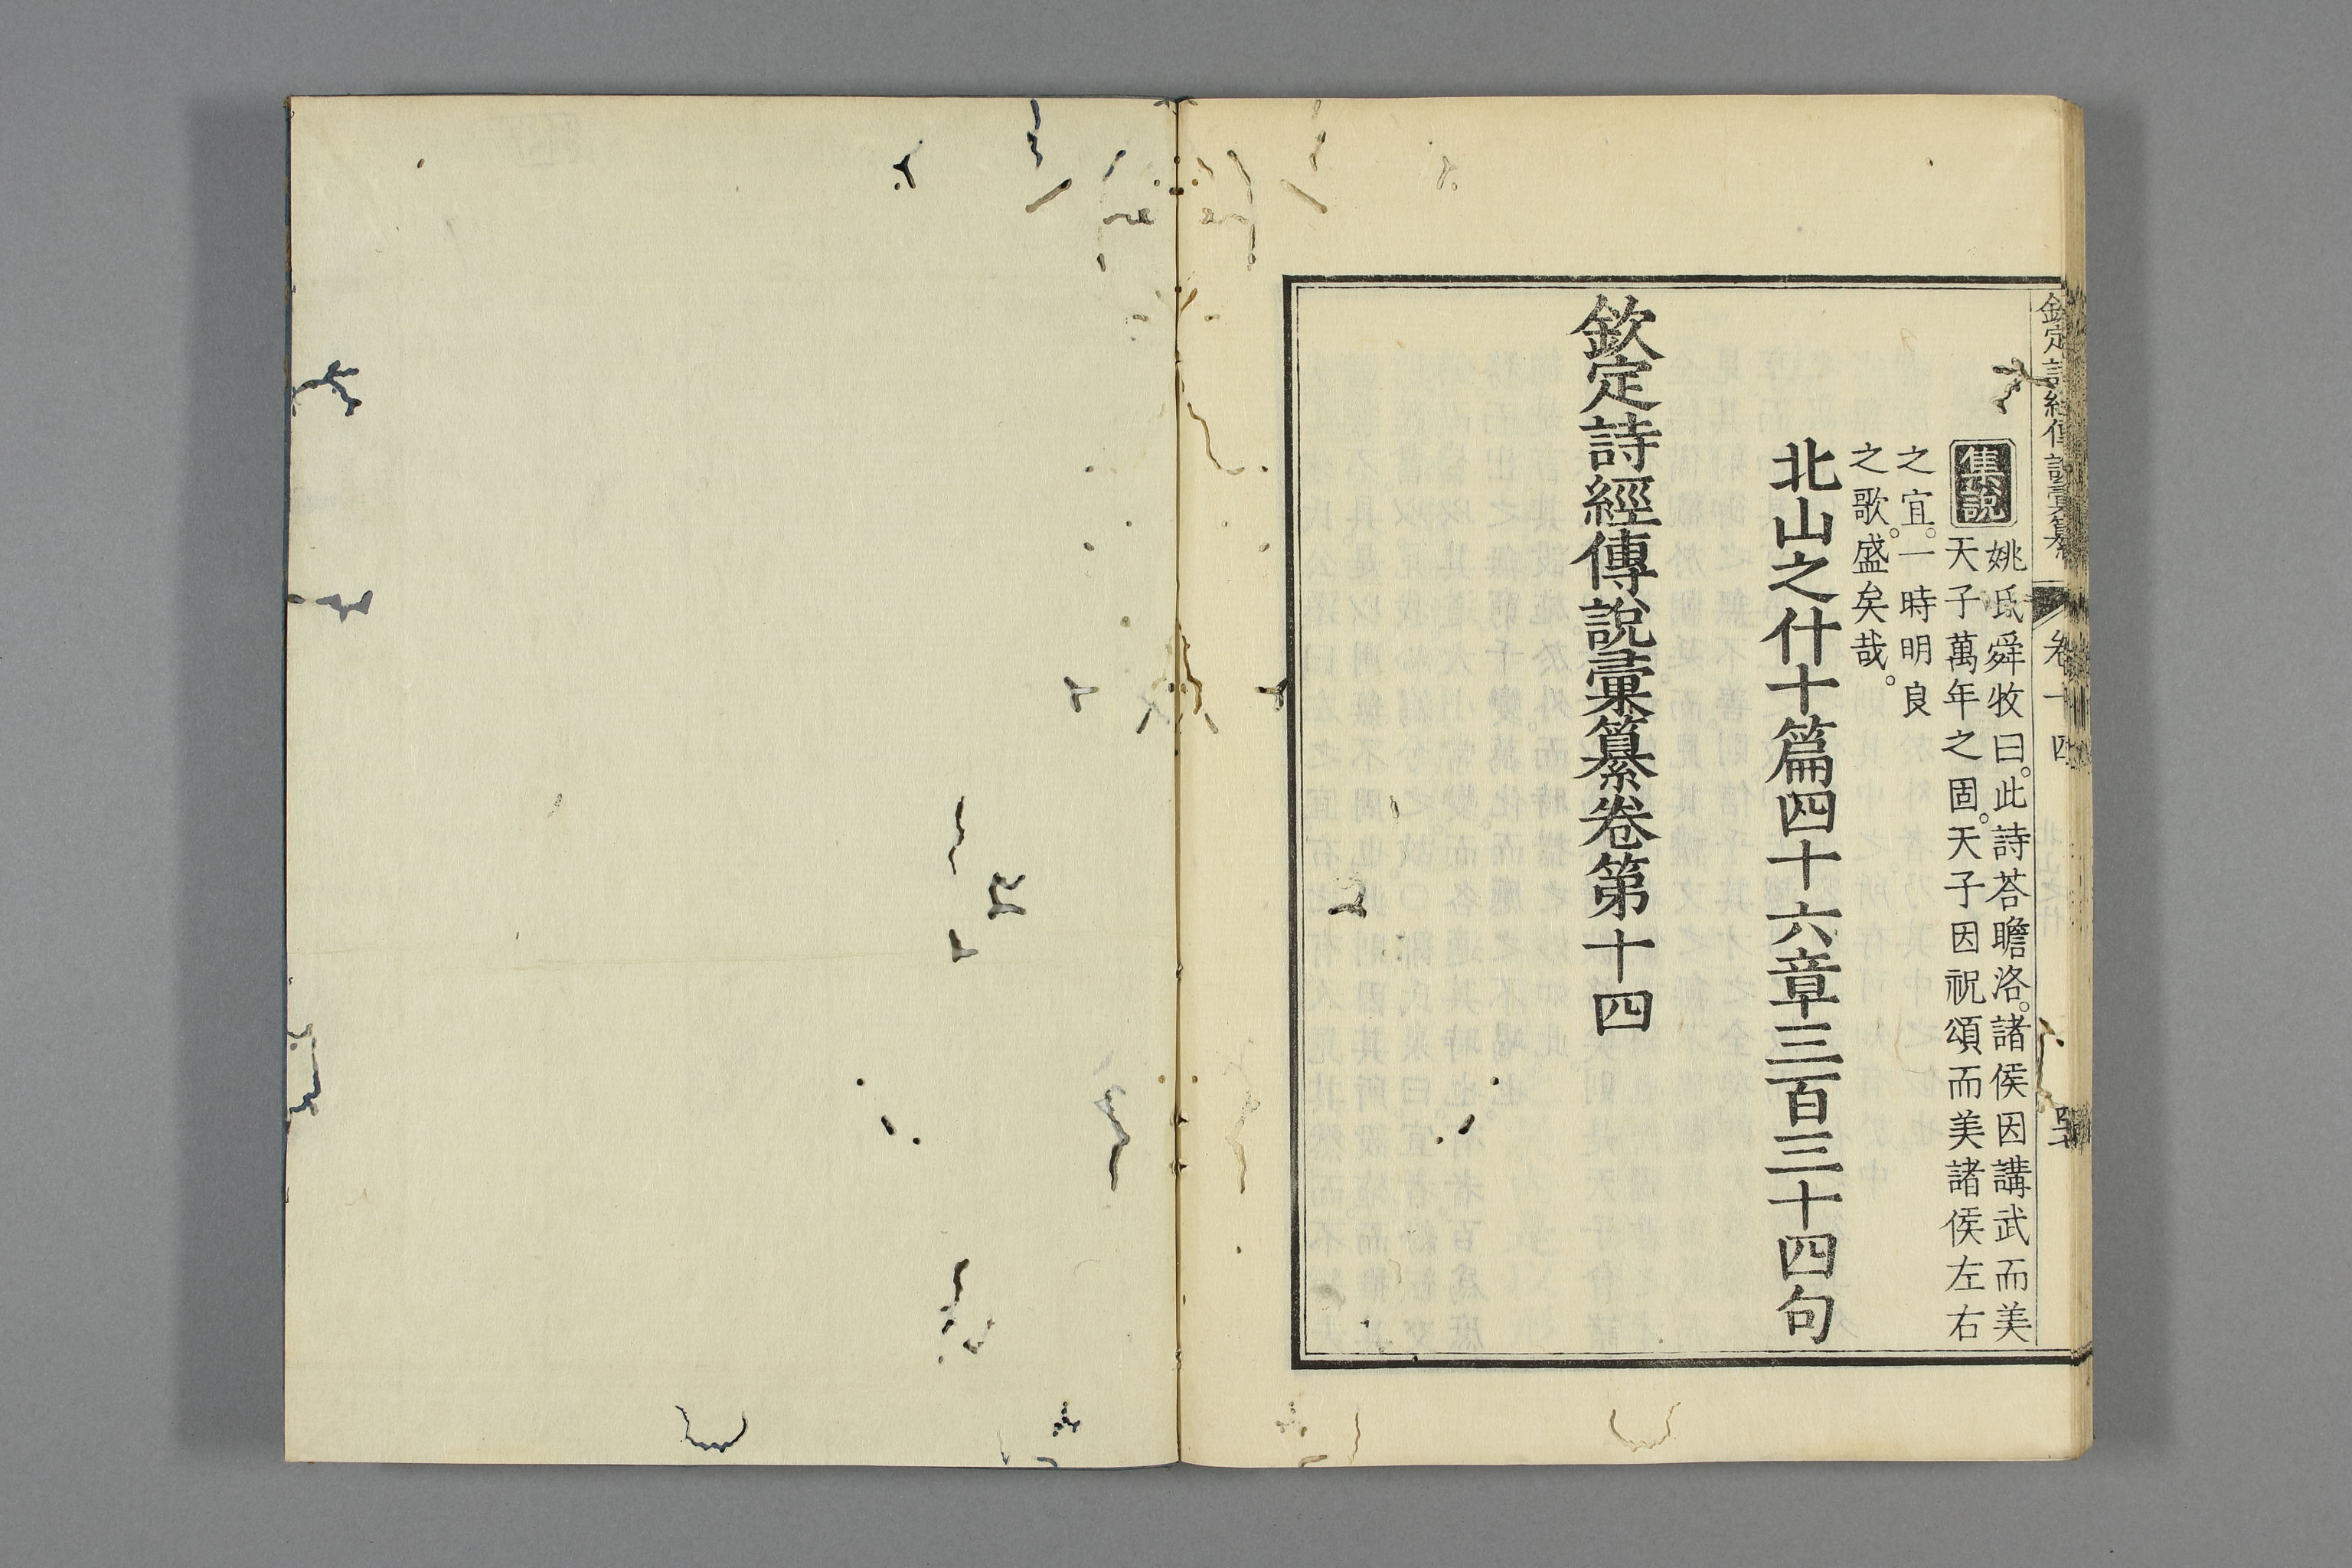 欽定詩經傳說彙纂 卷十四
集說
姚氏舜牧曰。此詩荅瞻洛。諸侯因講武而美
天子萬年之固。天子因祝頌而美諸侯左右
之宜。一時明良
之歌。盛矣哉。
北山之什十篇四十六章三百三十四句
欽定詩經傳說彙纂卷第十四